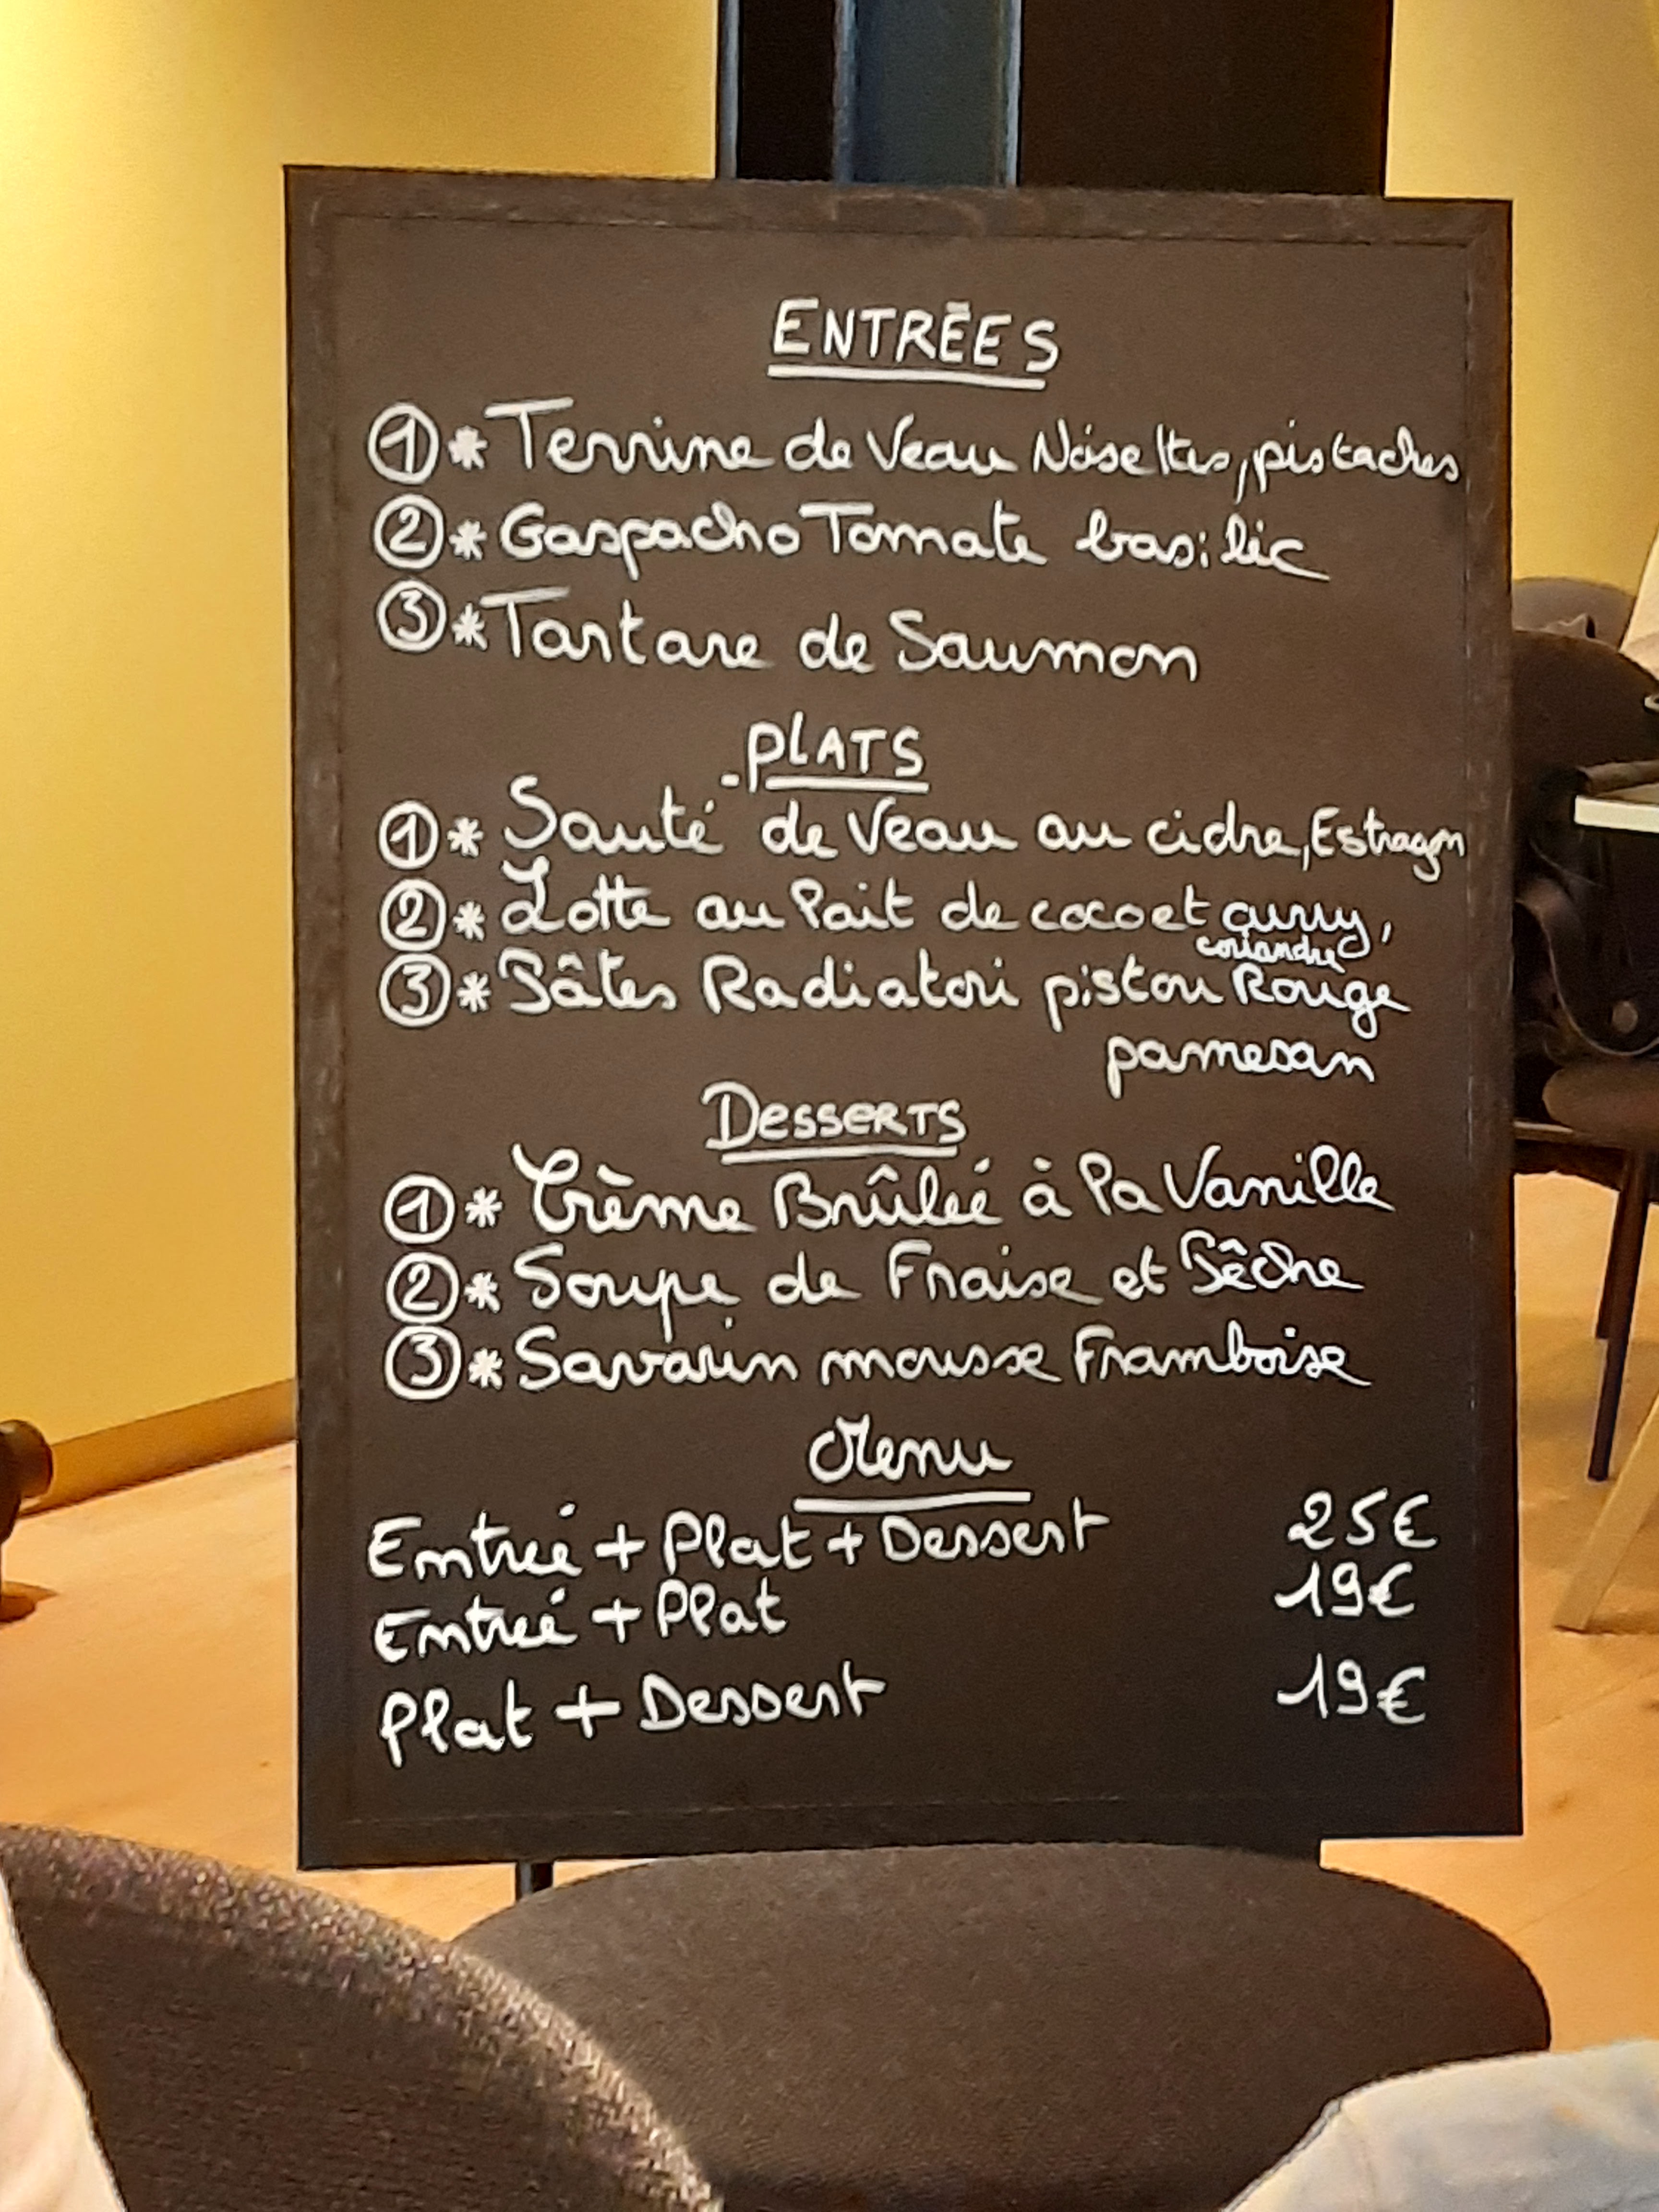 ENTRÉES
① * Terrine de Veau Noisettes, pistaches
② * Gaspacho Tomate basilic
③ * Tartare de Saumon
PLATS
① * Sauté de Veau au cidre, Estragon
② * Lotte au lait de coco et curry,
coriandre
③ * Pâtes Radiatori pistou Rouge
parmesan
Desserts
① * Crème Brûlée à la Vanille
② * Soupe de Fraise et Pêche
③ * Savarin mousse Framboise
Menu
Entrée + Plat + Dessert 25€
Entrée + Plat 19€
Plat + Dessert 19€